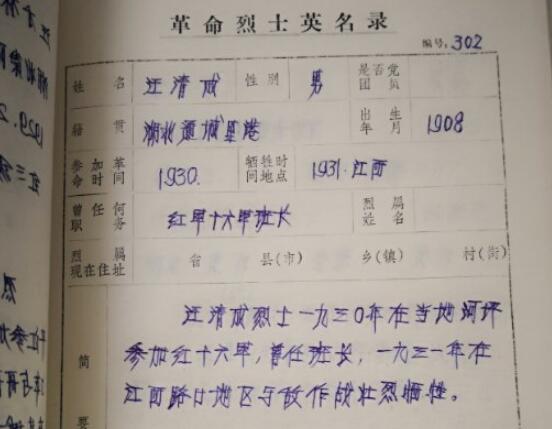 革命烈士英名录
编号:302
姓名 汪清成 性别 男 是否党团员
籍贯 湖北通城里港 出生年月 1908
参加革命时间 1930. 牺牲时间地点 1931.江西
曾任何职务 红军十六军班长 烈属姓名
烈属现在住址 省 县(市) 乡(镇) 村(街)
汪清成烈士一九三〇年在当地河坪
参加红十六军,曾任班长,一九三一年在
江西路口地区与敌作战壮烈牺牲。
简要